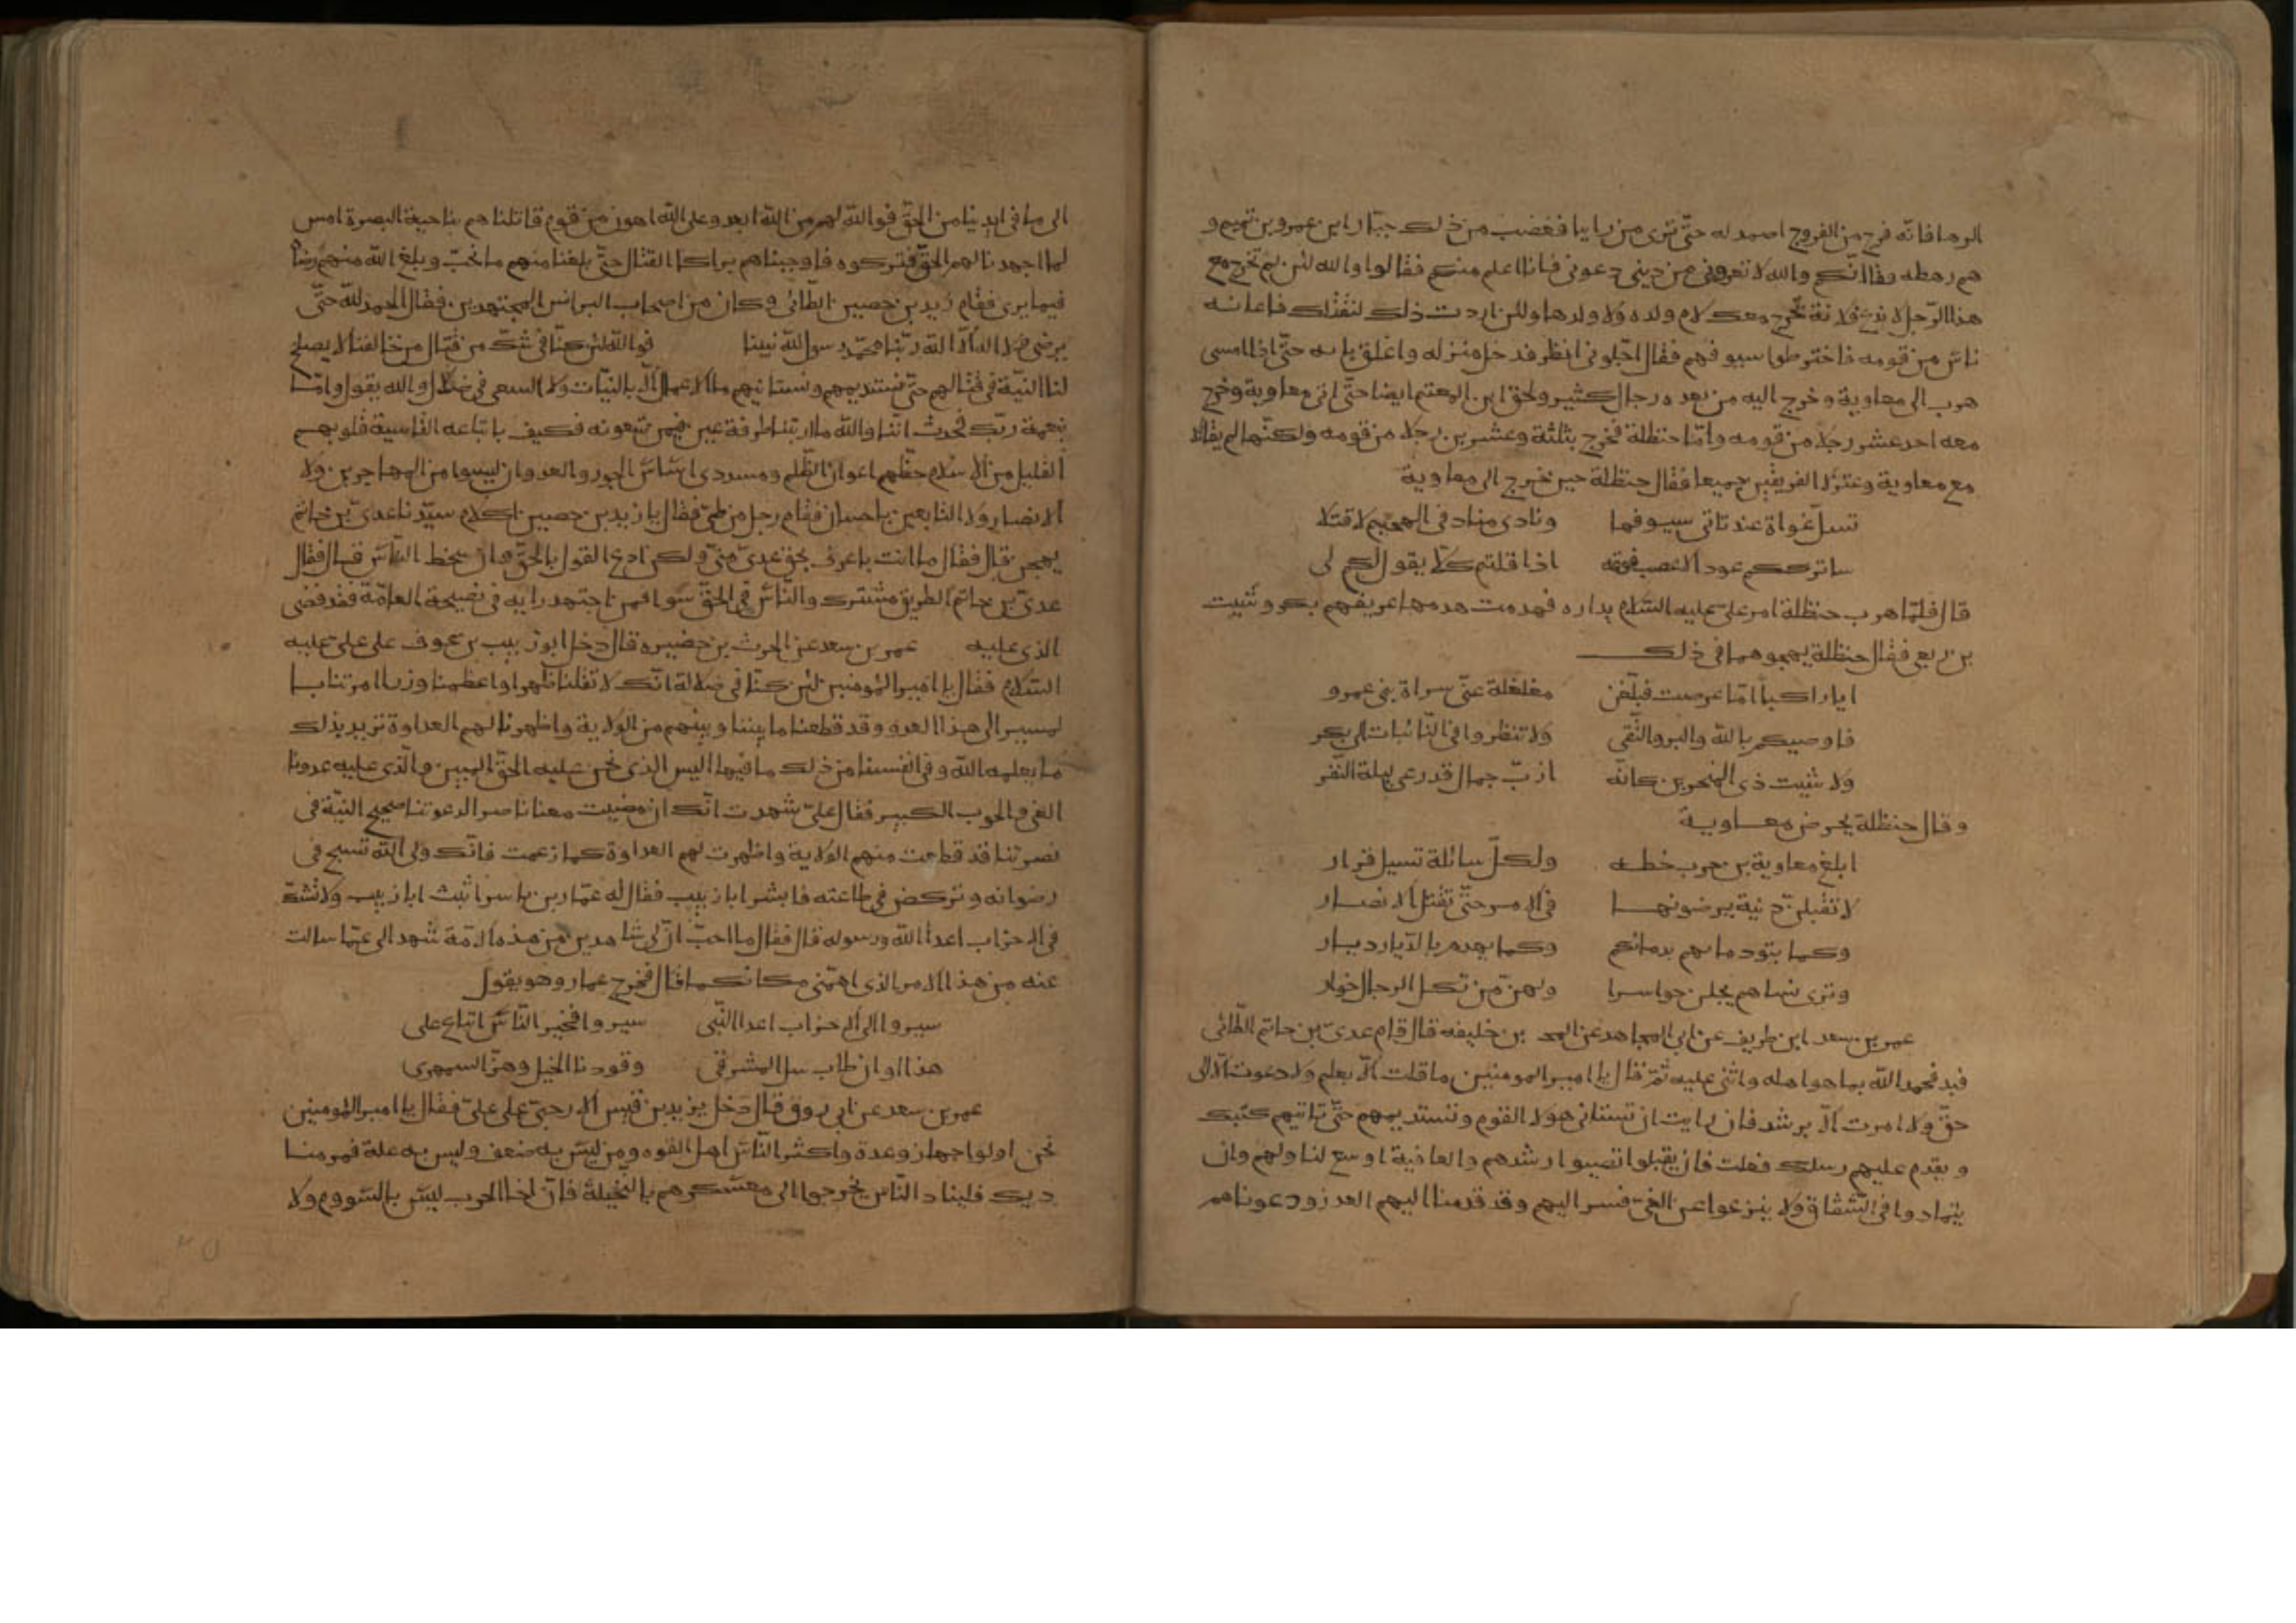 الرها فانه فرج من الفروج اصمد له حتى ترى من رايبا فغضب من ذلك جبار ابن عمرو بن تميم و
هم رهطه فقال انكم والله لا تغروني من ديني دعوني فانا اعلم منكم فقالوا والله لئن لم تخرج مع
هذا الرجل لا ندع فلانة تخرج معك لام ولده ولا ولدها ولئن اردت ذلك لنقتلك فاعانه
ناس من قومه فاخترطوا سيوفهم فقال اجلوني انظر فدخل منزله واغلق بابه حتى اذا امسى
هرب الى معاوية وخرج اليه من بعده رجال كثير ولحق ابن المعتم ايضا حتى اتى معاوية وخرج
معه احد عشر رجلا من قومه واما حنظلة فخرج بثلثة وعشرين رجلا من قومه ولكنهما لم يقاتلا
مع معاوية وعتزلا الفريقين جميعا فقال حنظلة حين خرج الى معاوية
تسل غواة عند تاتي سيوفها ونادى مناد في الهجيم لاقتلا
ساترككم عودا لاصعب فرقة اذا قلتم كلا يقول لكم لى
قال فلما هرب حنظلة امر على عليه السلام بداره فهدمت هدمها عريفهم بكر وشبيت
بن ربعي فقال حنظلة يهجوهما في ذلك
ايا راكبا اما عرضت فبلغن مغلغلة عني سراة بني عمرو
فاوصيكم بالله والبر والتقى ولا تنظروا في النائبات الى بكر
ولا شبيت ذي المنخرين كانه ازب جمال قد رعى ليلة النفر
وقال حنظلة يحرض معاوية
ابلغ معاوية بن حرب خطه ولكل سائلة تسيل قرار
لا تقبلن دنية يرضونها في الامر حتى تقتل الانصار
وكما تبوء دماءهم بدمائكم وكما يهدم بالديار ديار
وترى نساهم يجلن حواسرا ولهن من ثكل الرجال خوار
عمر بن سعد ابن طريف عن ابي المجاهد عن المحـ بن خليفه قال قام عدي بن حاتم الطائي
فبد فحمد الله بما هو اهله واثنى عليه ثم قال يا امير المومنين ما قلت الا بعلم ولا دعوت الا الى
حق ولا امرت الا برشد فان رايت ان تستاني هولا القوم وتستديمهم حتى تاتيهم كتبك
ويقدم عليهم رسلك فعلت فان يقبلوا تصيبوا ارشدهم والعافية اوسع لنا ولهم وان
يتمادوا في الشقاق ولا ينزعوا عن الغي فسر اليهم وقد قدمنا اليهم العذر ودعوناهم
الى ما في ايدينا من الحق فوالله لهم من الله ابعد وعلى الله اهون من قوم قاتلناهم بناحية البصرة امس
لما اجهدنا لهم الحق فتركوه فاوجبناهم براكا القتال حتى بلغنا منهم ما نحب وبلغ الله منهم رضا
فيما يرى فقام زيد بن حصين الطائي وكان من اصحاب البرانس المجتهدين فقال الحمد لله حتى
يرضى ولا اله الا الله ربنا محمد رسول الله نبينا فوالله لئن كنا في شك من قتال من خالفنا لا يصلح
لنا النية في قتالهم حتى نستديمهم ونستانيهم ما الاعمال الا بالنيات ولا السعي في ضلال والله يقول واما
بنعمة ربك فحدث اننا والله ما ارتبنا طرفة عين فيمن تتبعونه فكيف باتباعه القاسية قلوبهم
القليل من الاسلام حظهم اعوان الظلم ومسددى اساس الجور والعدوان ليسوا من المهاجرين ولا
الانصار ولا التابعين باحسان فقام رجل من طى فقال يا زيد بن حصين اكلام سيدنا عدى بن حاتم
يهجن قال فقال ما انت باعرف بحق عدى منى ولكن ادع القول بالحق وان سخط الناس قال فقال
عدى بن حاتم الطريق مشترك والناس في الحق سوا فمن اجتهد رايه في نصيحة العامة فقد قضى
الذي عليه عمر بن سعد عن الحرث بن حضيره قال دخل ابو زبيب بن عوف على على عليه
السلام فقال يا امير المومنين لئن كنا في ضلالة انك لا ثقلنا ظهرا واعظمنا وزرا امرتنا با
لمسير الى هذا العدو وقد قطعنا ما بيننا وبينهم من الولاية واظهرنا لهم العداوة نريد بذلك
ما يعلمه الله وفي انفسنا من ذلك ما فيها اليس الذي نحن عليه الحق المبين والذي عليه عدونا
الغى والحوب الكبير فقال على شهدت انك ان مضيت معنا ناصرا لدعوتنا صحيح النية في
نصرتنا قد قطعت منهم الولاية واظهرت لهم العداوة كما زعمت فانك ولى الله تسيح في
رضوانه وتركض في طاعته فابشر ابا زبيب فقال له عمار بن ياسر اثبت ابا زبيب ولا تشك
في الاحزاب اعدا الله ورسوله قال فقال ما احب ان لى شاهدين من هذه الامة شهدا لى عما سالت
عنه من هذا الامر الذي اهمني مكانكما قال فخرج عمار وهو يقول
سيروا الى الاحزاب اعدا النبى سيروا فخير الناس اتباع على
هذا اوان طاب سل المشرفى وقودنا الخيل وهز السمهرى
عمر بن سعد عن ابي روق قال دخل يزيد بن قيس الارحبى على على فقال يا امير المومنين
نحن اولوا جهاز وعدة واكثر الناس اهل القوه ومن ليس به ضعف وليس به علة فمر منا
ديك فليناد الناس يخرجوا الى معسكرهم بالنخيلة فان اخا الحرب ليس بالسووم ولا